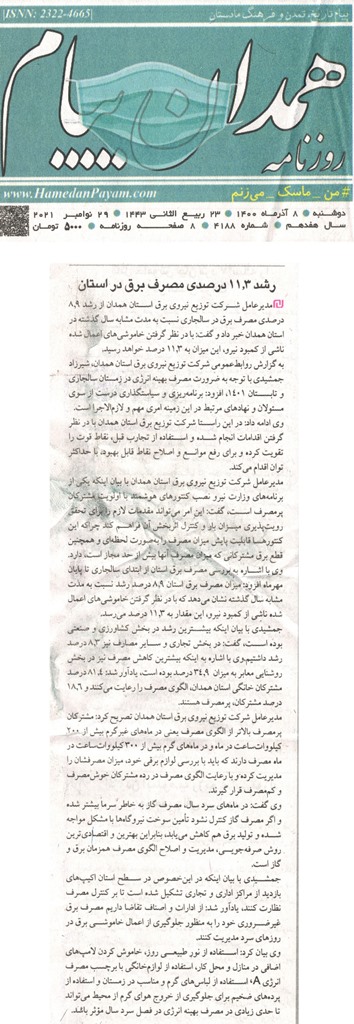 ISNN: 2322-4665
پیام تاریخ، تمدن و فرهنگ مادستان
همدان پیام
روزنامه
www.HamedanPayam.com
#من_ماسک_می‌زنم
دوشنبه ● ۸ آذرماه ۱۴۰۰ ● ۲۳ ربیع الثانی ۱۴۴۳ ● ۲۹ نوامبر ۲۰۲۱
سال هفدهم ● شماره ۴۱۸۸ ● ۸ صفحه روزنامه ● ۵۰۰۰ تومان
رشد ۱۱٫۳ درصدی مصرف برق در استان
مدیرعامل شرکت توزیع نیروی برق استان همدان از رشد ۸٫۹
درصدی مصرف برق در سالجاری نسبت به مدت مشابه سال گذشته در
استان همدان خبر داد و گفت: با در نظر گرفتن خاموشی‌های اعمال شده
ناشی از کمبود نیرو، این میزان به ۱۱٫۳ درصد خواهد رسید.
به گزارش روابط‌عمومی شرکت توزیع نیروی برق استان همدان، شیرزاد
جمشیدی با توجه به ضرورت مصرف بهینه انرژی در زمستان سالجاری
و تابستان ۱۴۰۱، افزود: برنامه‌ریزی و سیاستگذاری درست از سوی
مسئولان و نهادهای مرتبط در این زمینه امری مهم و لازم‌الاجرا است.
وی ادامه داد: در این راستا شرکت توزیع برق استان همدان با در نظر
گرفتن اقدامات انجام شده و استفاده از تجارب قبل، نقاط قوت را
تقویت کرده و برای رفع موانع و اصلاح نقاط قابل بهبود، با حداکثر
توان اقدام می‌کند.
مدیرعامل شرکت توزیع نیروی برق استان همدان با بیان اینکه یکی از
برنامه‌های وزارت نیرو نصب کنتورهای هوشمند با اولویت مشترکان
پرمصرف است، گفت: این امر می‌تواند مقدمات لازم را برای تحقق
رویت‌پذیری میزان بار و کنترل اثربخش آن فراهم کند چراکه این
کنتورها قابلیت پایش میزان مصرف را به‌صورت لحظه‌ای و همچنین
قطع برق مشترکانی که میزان مصرف آنها بیش از حد مجاز است، دارد.
وی با اشاره به بررسی مصرف برق استان از ابتدای سالجاری تا پایان
مهرماه افزود: میزان مصرف برق استان ۸٫۹ درصد رشد نسبت به مدت
مشابه سال گذشته نشان می‌دهد که با در نظر گرفتن خاموشی‌های اعمال
شده ناشی از کمبود نیرو، این مقدار به ۱۱٫۳ درصد می‌رسد.
جمشیدی با بیان اینکه بیشترین رشد در بخش کشاورزی و صنعتی
بوده است، گفت: در بخش تجاری و سایر مصارف نیز ۸٫۳ درصد
رشد داشتیم.وی با اشاره به اینکه بیشترین کاهش مصرف نیز در بخش
روشنایی معابر به میزان ۳۴٫۹ درصد بوده است، یادآور شد: ۸۱٫۴ درصد
مشترکان خانگی استان همدان، الگوی مصرف را رعایت می‌کنند و ۱۸٫۶
درصد مشترکان، پرمصرف هستند.
مدیرعامل شرکت توزیع نیروی برق استان همدان تصریح کرد: مشترکان
پرمصرف بالاتر از الگوی مصرف یعنی در ماه‌های غیرگرم بیش از ۲۰۰
کیلووات‌ساعت در ماه و در ماه‌های گرم بیش از ۳۰۰ کیلووات‌ساعت در
ماه مصرف دارند که باید با بررسی لوازم برقی خود، میزان مصرفشان را
مدیریت کرده و با رعایت الگوی مصرف در رده مشترکان خوش‌مصرف
و کم‌مصرف قرار گیرند.
وی گفت: در ماه‌های سرد سال، مصرف گاز به خاطر سرما بیشتر شده
و اگر مصرف گاز کنترل نشود تأمین سوخت نیروگاه‌ها با مشکل مواجه
شده و تولید برق هم کاهش می‌یابد، بنابراین بهترین و اقتصادی‌ترین
روش صرفه‌جویی، مدیریت و اصلاح الگوی مصرف همزمان برق و
گاز است.
جمشیدی با بیان اینکه در این‌خصوص در سطح استان اکیپ‌های
بازدید از مراکز اداری و تجاری تشکیل شده است تا بر کنترل مصرف
نظارت کنند، یادآور شد: از ادارات و اصناف تقاضا داریم مصرف برق
غیرضروری خود را به منظور جلوگیری از اعمال خاموشی برق در
روزهای سرد مدیریت کنند.
وی بیان کرد: استفاده از نور طبیعی روز، خاموش کردن لامپ‌های
اضافی در منازل و محل کار، استفاده از لوازم‌خانگی با برچسب مصرف
انرژی A، استفاده از لباس‌های گرم و مناسب در زمستان و استفاده از
پرده‌های ضخیم برای جلوگیری از خروج هوای گرم از محیط می‌تواند
تا حدی زیادی در مصرف بهینه انرژی در فصل سرد سال مؤثر باشد.